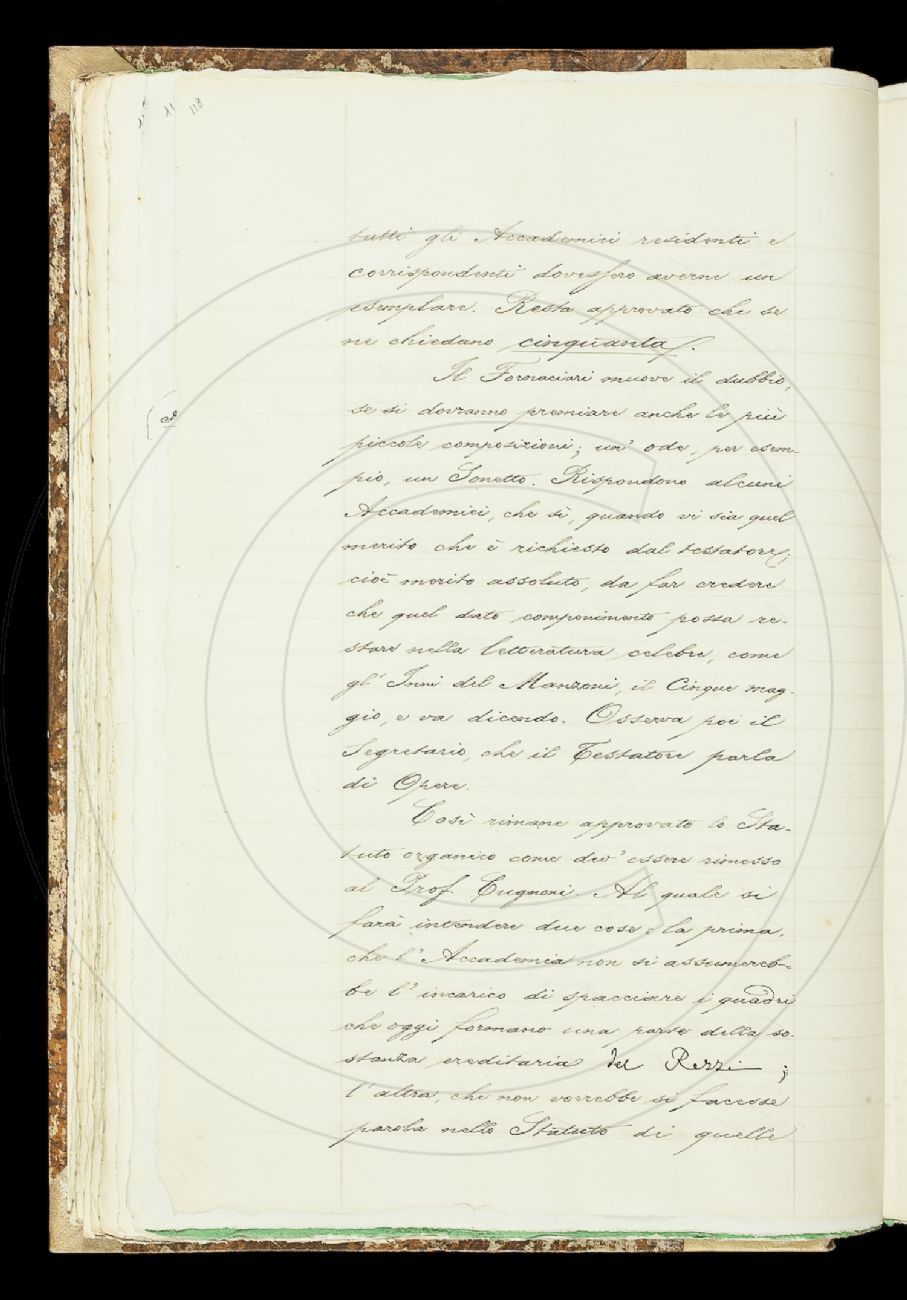 118
tutti gli Accademici residenti e
corrispondenti dovessero averne un
esemplare. Resta approvato che se
ne chiedano cinquanta.
Il Fornaciari muove il dubbio,
se si dovranno premiare anche le più
piccole composizioni; un' ode, per esem-
pio, un Sonetto. Rispondono alcuni
Accademici, che sì, quando vi sia quel
merito che è richiesto dal testatore;
cioè merito assoluto, da far credere
che quel dato componimento possa re-
stare nella letteratura celebre, come
gl' Inni del Manzoni, il Cinque mag-
gio, e va dicendo. Osserva poi il
Segretario, che il Testatore parla
di Opere.
Così rimane approvato lo Sta-
tuto organico come dev' essere rimesso
al Prof. Cugnoni. Al quale si
farà intendere due cose: la prima,
che l' Accademia non si assumereb-
be l' incarico di spacciare i quadri
che oggi formano una parte della so-
stanza ereditaria del Rezzi;
l' altra, che non vorrebbe si facesse
parola nello Statuto di quelle